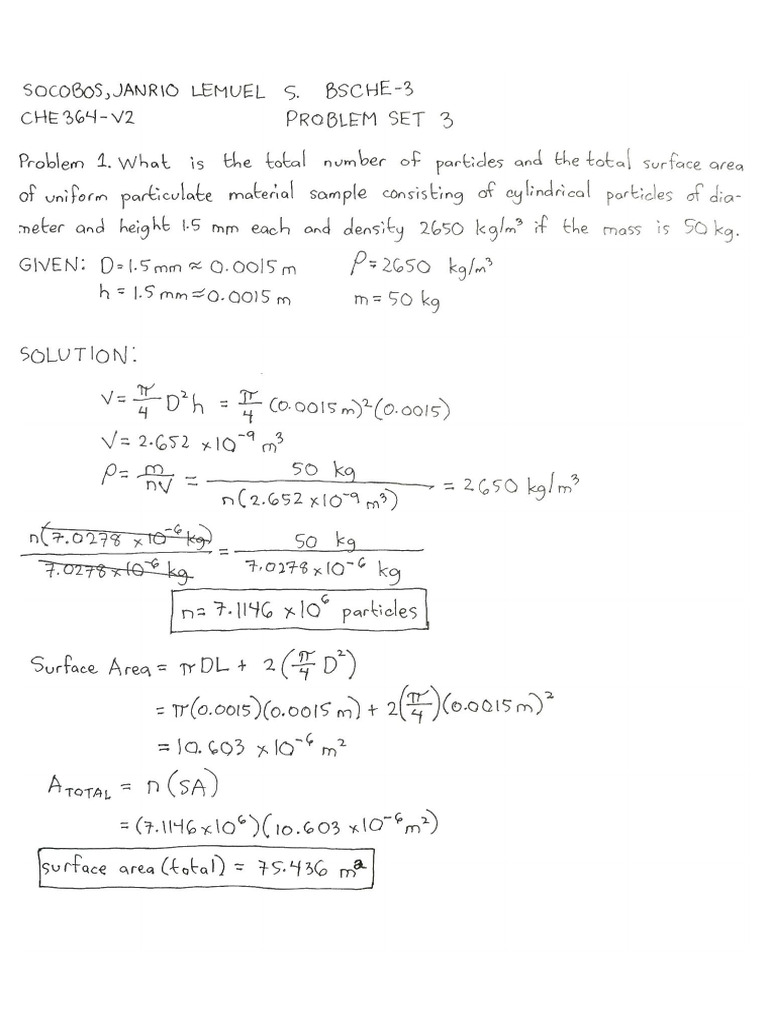 SOCOBOS, JANRIO LEMUEL S. BSCHE-3
CHE364-V2 PROBLEM SET 3
Problem 1. What is the total number of particles and the total surface area
of uniform particulate material sample consisting of cylindrical particles of dia-
meter and height 1.5 mm each and density 2650 kg/m³ if the mass is 50 kg.
GIVEN: D=1.5mm ≈ 0.0015m ρ=2650 kg/m³
h = 1.5mm≈0.0015 m m=50 kg
SOLUTION:
V= π/4 D²h = π/4 (0.0015m)²(0.0015)
V= 2.652 ×10⁻⁹ m³
ρ= m/nV = 50 kg / n(2.652×10⁻⁹m³) = 2650 kg/m³
n(7.0278×10⁻⁶kg) / 7.0278×10⁻⁶ kg = 50 kg / 7.0278×10⁻⁶ kg
n=7.1146 ×10⁶ particles
Surface Area = πDL + 2(π/4 D²)
= π(0.0015)(0.0015m) + 2(π/4)(0.0015m)²
= 10.603 ×10⁻⁶ m²
A TOTAL = n(SA)
= (7.1146×10⁶)(10.603 ×10⁻⁶m²)
surface area (total) = 75.436 m²